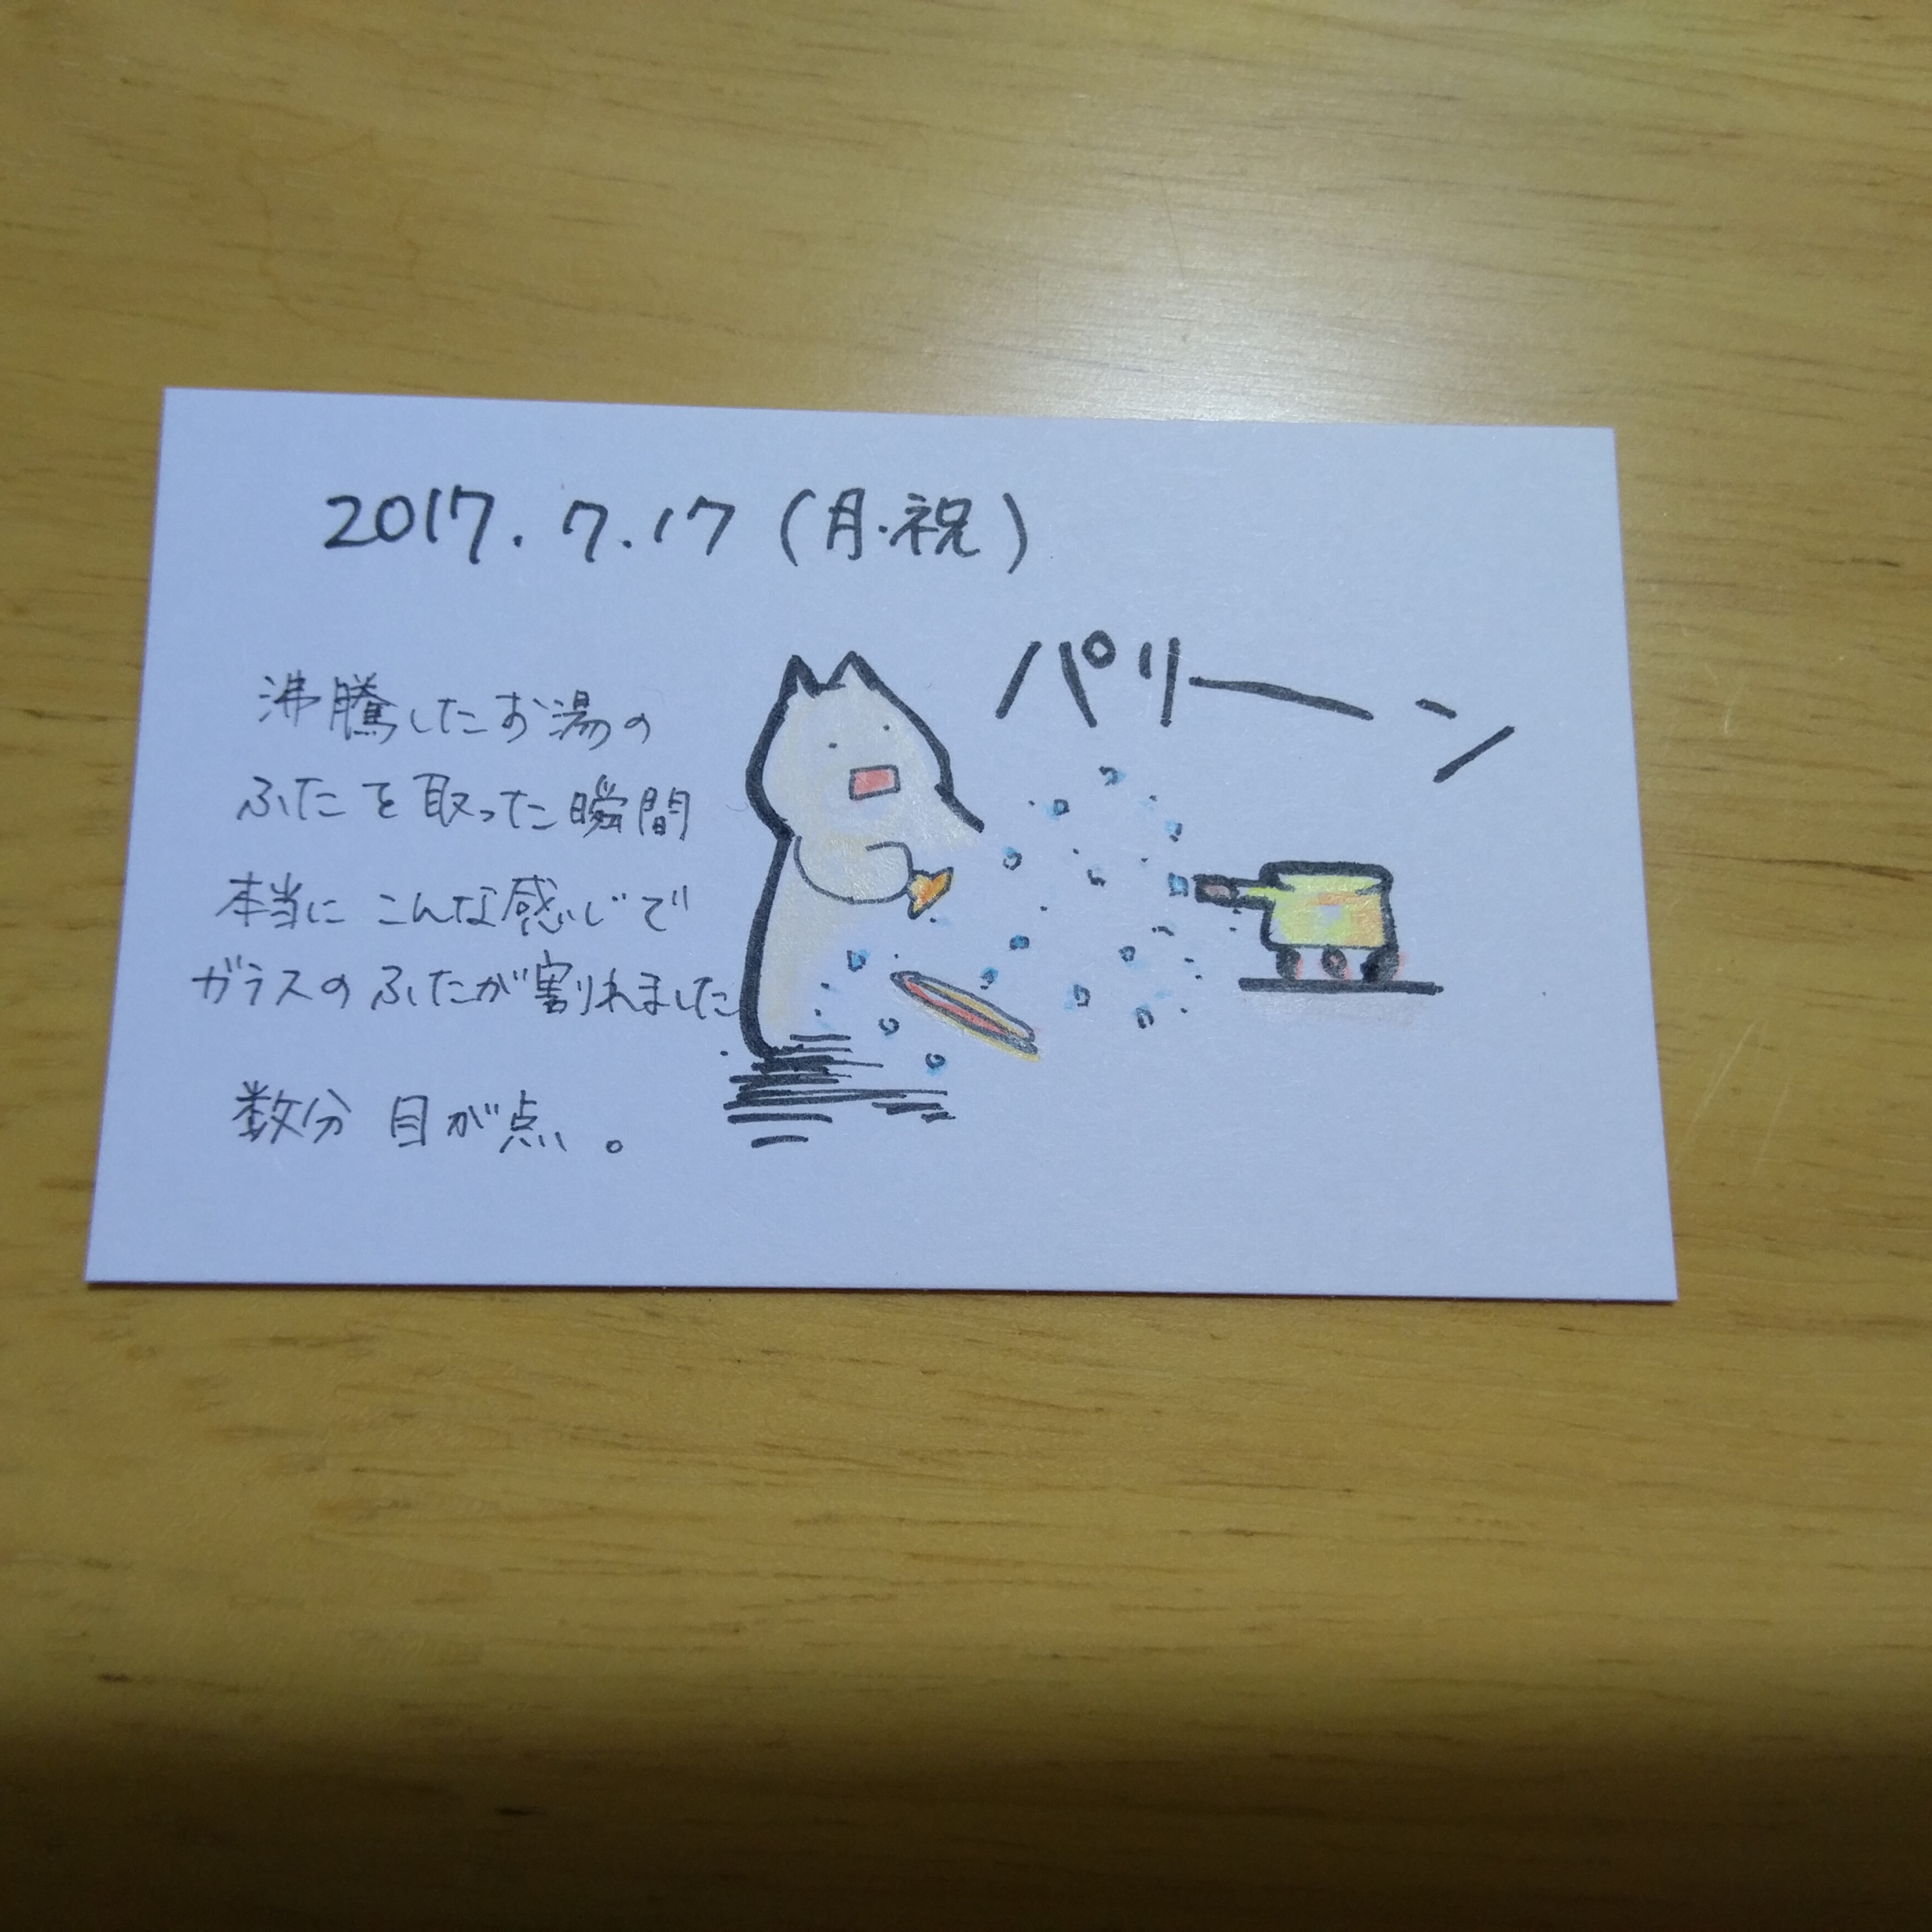 2017.7.17(月·祝)
パリーン
沸騰したお湯の
ふたを取った瞬間
本当にこんな感じで
ガラスのふたが割れました
数分 目が点。